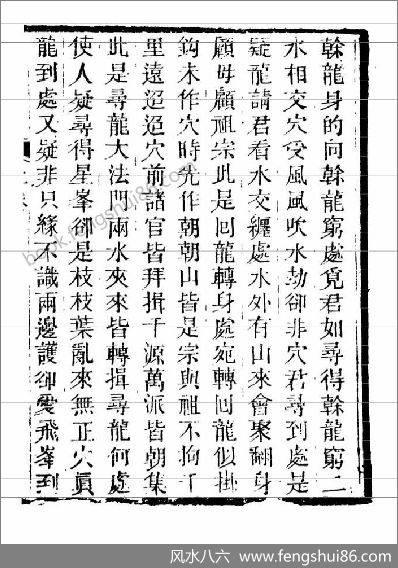 榦龍身的向榦龍窮處覓君如尋得榦龍窮二
水相交穴受風風吹水劫卻非穴君尋到處是
疑龍請君看水交纏處水外有山來會聚翻身
顧母顧祖宗此是回龍轉身處宛轉回龍似掛
鈎未作穴時先作朝朝山皆是宗與祖不拘千
里遠迢迢穴前諸官皆拜揖千源萬派皆朝集
此是尋龍大法門兩水夾來皆轉揖尋龍何處
使人疑尋得星峯卻是枝枝葉亂來無正穴眞
龍到處又疑非只緣不識兩邊護卻愛飛峯到
book.fengshui86.com
风水八六 ○ www.fengshui86.com